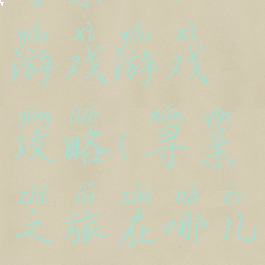 yóu xì yóu xì
游戏游戏
gōng lüè xún jǐng
攻略(寻景
zhī lǚ zài nǎ ér
之旅在哪儿